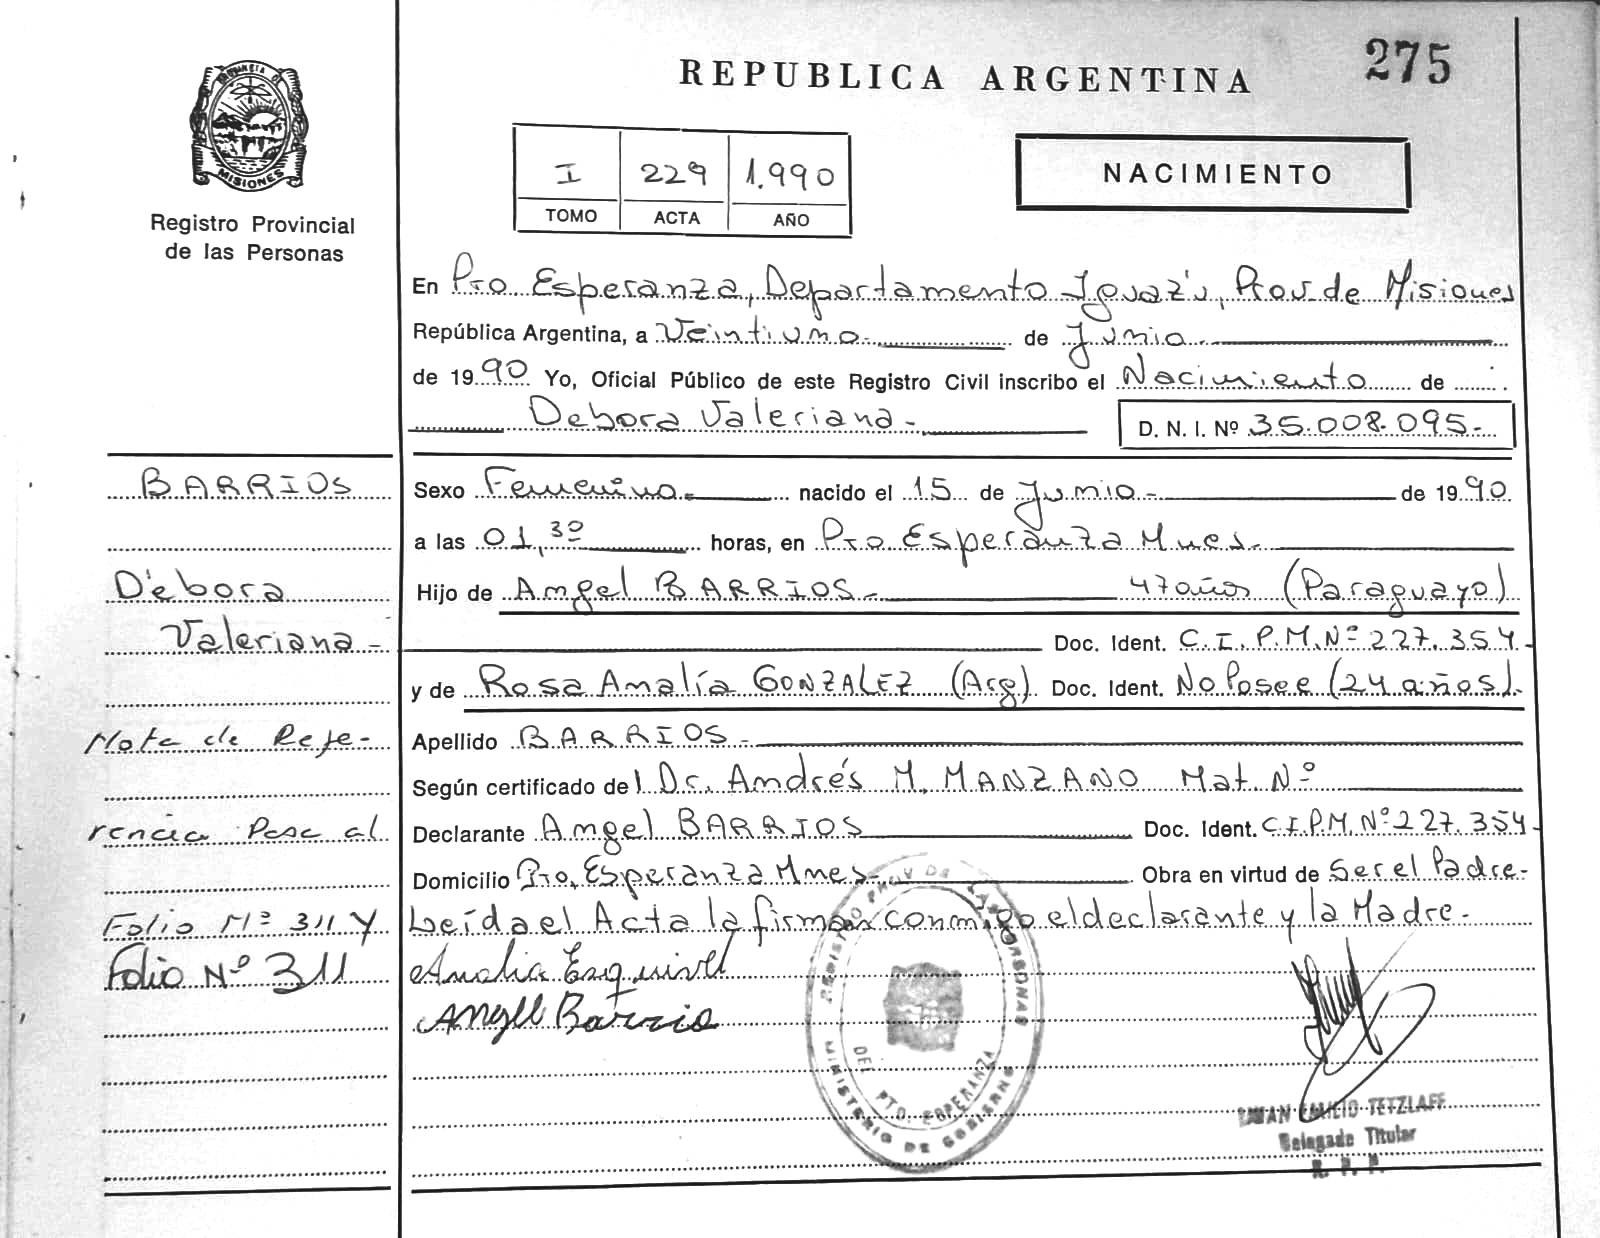 275
REPUBLICA ARGENTINA
PROVINCIA DE
MISIONES
Registro Provincial
de las Personas
I 229 1.990
TOMO ACTA AÑO
NACIMIENTO
En Pto. Esperanza, Departamento Iguazú, Prov. de Misiones
República Argentina, a Veintiuno.- de Junio.-
de 1990 Yo, Oficial Público de este Registro Civil inscribo el Nacimiento de
Debora Valeriana.-
D. N. I. Nº 35.008.095.-
BARRIOS
Débora
Valeriana.-
Nota de Refe-
rencia Pasa al
Folio Nº 311 Y
Folio Nº 311
Sexo Femenino.- nacido el 15 de Junio.- de 1990
a las 01,30 horas, en Pto. Esperanza Mnes.-
Hijo de Angel BARRIOS.- 47 años (Paraguayo)
Doc. Ident. C.I.P.M.Nº 227.354.-
y de Rosa Amalía GONZALEZ (Arg) Doc. Ident. No Posee (24 años).-
Apellido BARRIOS.-
Según certificado del Dr. Andrés M. MANZANO Mat. Nº
Declarante Angel BARRIOS Doc. Ident. C.I.P.M.Nº 227.354.-
Domicilio Pto. Esperanza Mnes.- Obra en virtud de Ser el Padre.-
Leída el Acta la firman conmigo el declarante y la Madre.-
Amalia Esquivel
Angel Barrio
REGISTRO PROV DE LAS PERSONAS
DEL PTO. ESPERANZA
MINISTERIO DE GOBIERNO
EMILIO TETZLAFF
Delegado Titular
R. P. P.